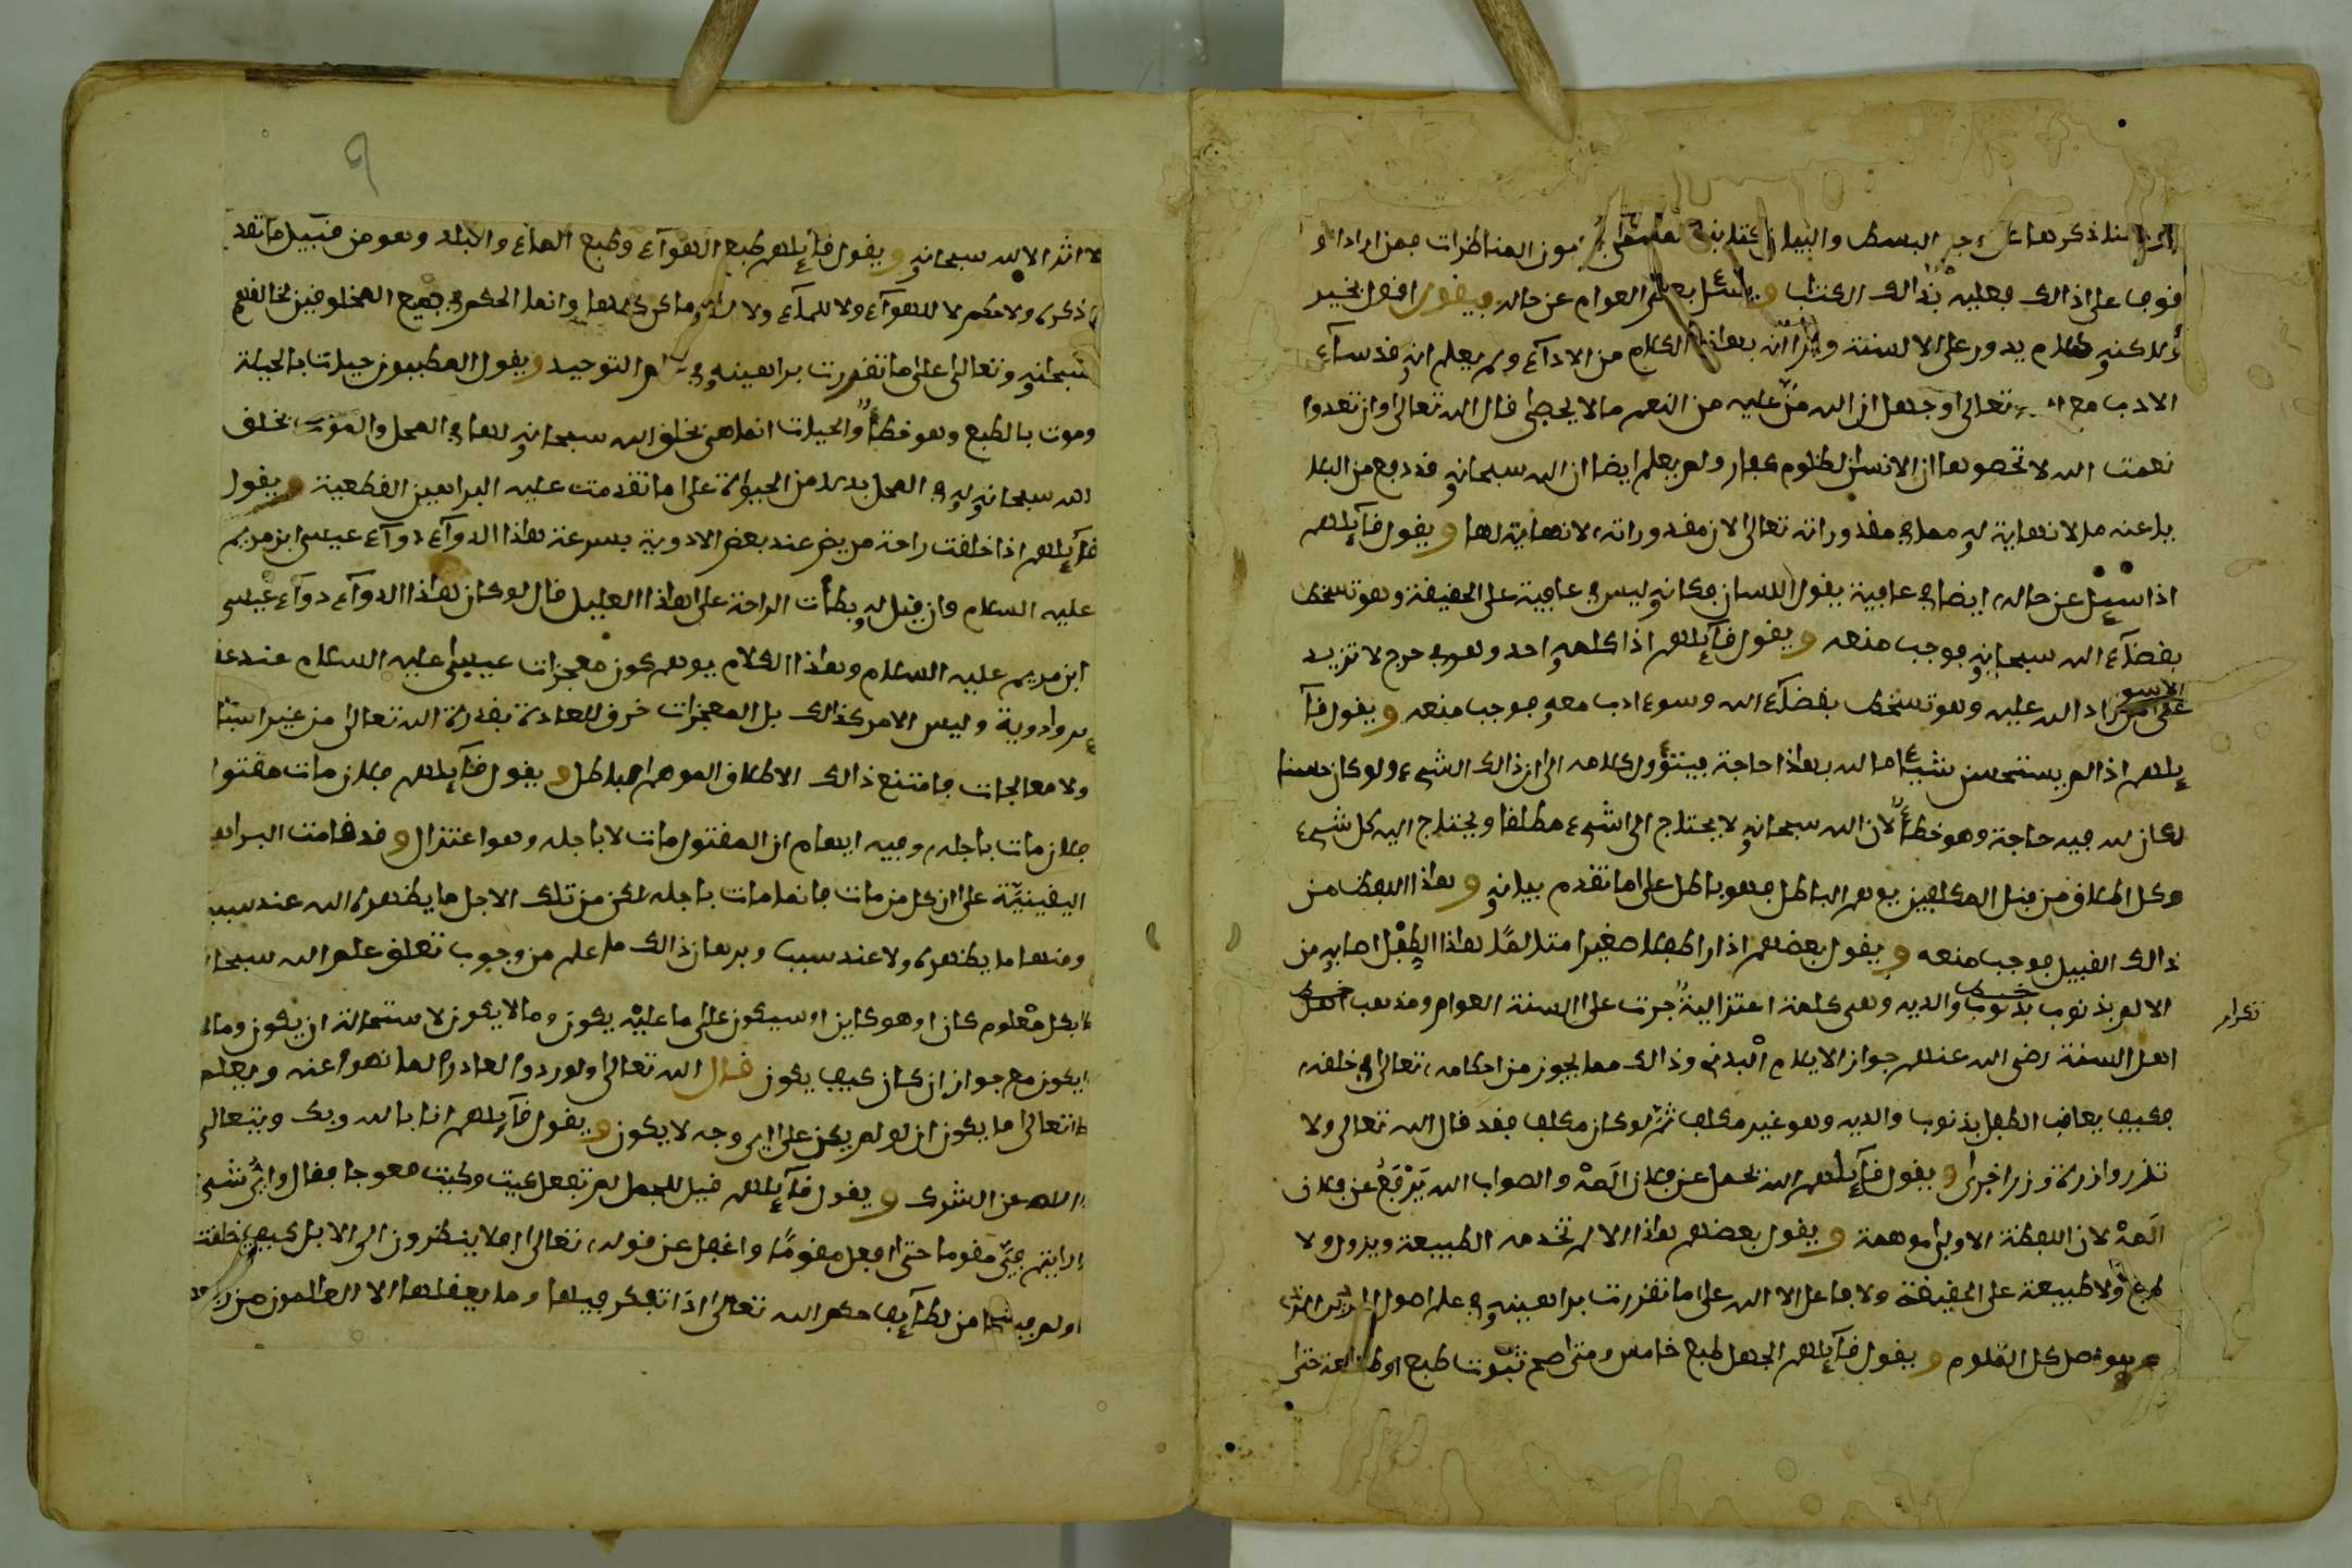 ذكرها على البسط والبيان كتابنا المناظرات فمن اراد الو
قوف على ذالك فعليه بذالك الكتاب ويسئل بعض العوام عن حاله فيقول اقول بخير
ولاكنه كلام يدور على الالسنة وارا ان بهاذا الكلام من الادآء ولم يعلم انه قد سآء
الادب مع الله تعالى وجهل ان الله منّ عليه من النعم مالا يحصى قال الله تعالى وان تعدوا
نعمت الله لا تحصوها ان الانسان لظلوم كفار ولم يعلم ايضا ان الله سبحانه قد دفع من البلا
يا عنه ما لا نهاية له مما في مقدوراته تعالى لان مقدوراته لا نهاية لها ويقول قآيلهم
اذا سيل عن حاله ايضا في عافية يقول اللسان فكانه ليس في عافية على الحقيقة وهو تسخط
بقضآء الله سبحانه فوجب منعه ويقول قآيلهم اذا كلمه احد وهو في حرج لا تزيد
على ما زاد الله عليه وهو تسخط بقضآء الله وسوء ادب معه فوجب منعه ويقول قآ
يلهم اذا لم يستحسن شيئا ما لله بهاذا حاجة فيتؤول كلامه الى ان ذالك الشيء ولو كان حسنا
لكان لله فيه حاجة وهو خطأ لان الله سبحانه لا يحتاج الى شيء مطلقا ويحتاج اليه كل شيء
وكل اطلاق من قبل المكلفين يوهم الباطل فهو باطل على ما تقدم بيانه وهاذا اللفظ من
ذالك القبيل فوجب منعه ويقول بعضهم اذا راا طفلا صغيرا متالمًا هاذا الطفل اصابه من
الالم بذنوب بذنوب والديه وهي كلمة اعتزالية جرت على السنة العوام ومذهب
تكرار
اهل السنة رضي الله عنهم جواز الايلام البدني وذالك مما يجوز من احكامه تعالى في خلقه
فكيف يعاقب الطفل بذنوب والديه وهو غير مكلف ثم لو كان مكلف فقد قال الله تعالى ولا
تزر وازرة وزر اخرى ويقول قآيلهم الله يحمل عن فلان الَهمّ والصواب الله يَرْفَعُ عن فلان
الَهمّ لان اللفظة الاولى موهمة ويقول بعضهم هاذا الالم تخدمه الطبيعة ويزول ولا
طبع ولا طبيعة على الحقيقة ولا فاعل الا الله على ما تقررت براهينه في علم اصول
هو اصل كل العلوم ويقول قآيلهم الجهل طبع خامس ومتى صح ثبوت طبع او طبآيعة حتى
٩
لا اثر الا لله سبحانه ويقول قآيلهم طبع الهوآء وطبع المآء والبلد وهو من قبيل ما تقد
م ذكره ولا حكم لا للهوآء ولا للمآء ولا وانما الحكم في جميع المخلوقين لخالقهم
سبحانه وتعالى على ما تقررت براهينه في علم التوحيد ويقول الطبيون حييات بالحيلة
وموت بالطبع وهو خطأ والحيات انما هي بخلق الله سبحانه لها في المحل والموت بخلق
الله سبحانه له في المحل بدلا من الحيوة على ما تقدمت عليه البراهين القطعية ويقول
قآيلهم اذا خلقت راحة مريض عند بعض الادوية بسرعة هاذا الدوآء دوآء عيسى ابن مريم
عليه السلام وان قيل له بطأت الراحة على هاذا العليل قال لو كان هاذا الدوآء دوآء عيسى
ابن مريم عليه السلام وهاذا الكلام يوهم كون معجزات عيسى عليه السلام عند عقا
قير وادوية وليس الامر كذالك بل المعجزات خرق للعادة بقدرة الله تعالى من غير اسبا
ولا معالجات فامتنع ذالك الاطلاق الموهم لباطل ويقول قآيلهم فلان مات مقتول
فلان مات باجله وفيه ايهام ان المقتول مات لا باجله وهو اعتزال وقد قامت البراهـ
اليقينيّة على ان كل من مات فانما مات باجله لكن من تلك الاجل ما يظهره الله عند سبب
ومنها ما يظهره ولا عند سبب وبرهان ذالك ما علم من وجوب تعلق علم الله سبحا
نه بكل معلوم كان او هو كاين او سيكون على ما عليه يكون وما لا يكون لاستحالة ان يكون وما لا
يكون مع جواز ان كان كيف يكون قال الله تعالى ولو ردوا لعادوا لما نهوا عنه ويعلم
تعالى ما يكون ان لو لم يكن على اي وجه لا يكون ويقول قآيلهم انا بالله وبك ويتعالى
الله عن الشرك ويقول قآيلهم قيل للجمل لم تفعل كيت وكيت معوجا فقال واي شيء
رايتم فيّ مقوما حتى افعل مقومًا واغفل عن قوله تعالى افلا ينظرون الى الابل كيف خلقت
او لم من لطآيف حكم الله تعالى اذا تفكر فيها وما يعقلها الا العالمون